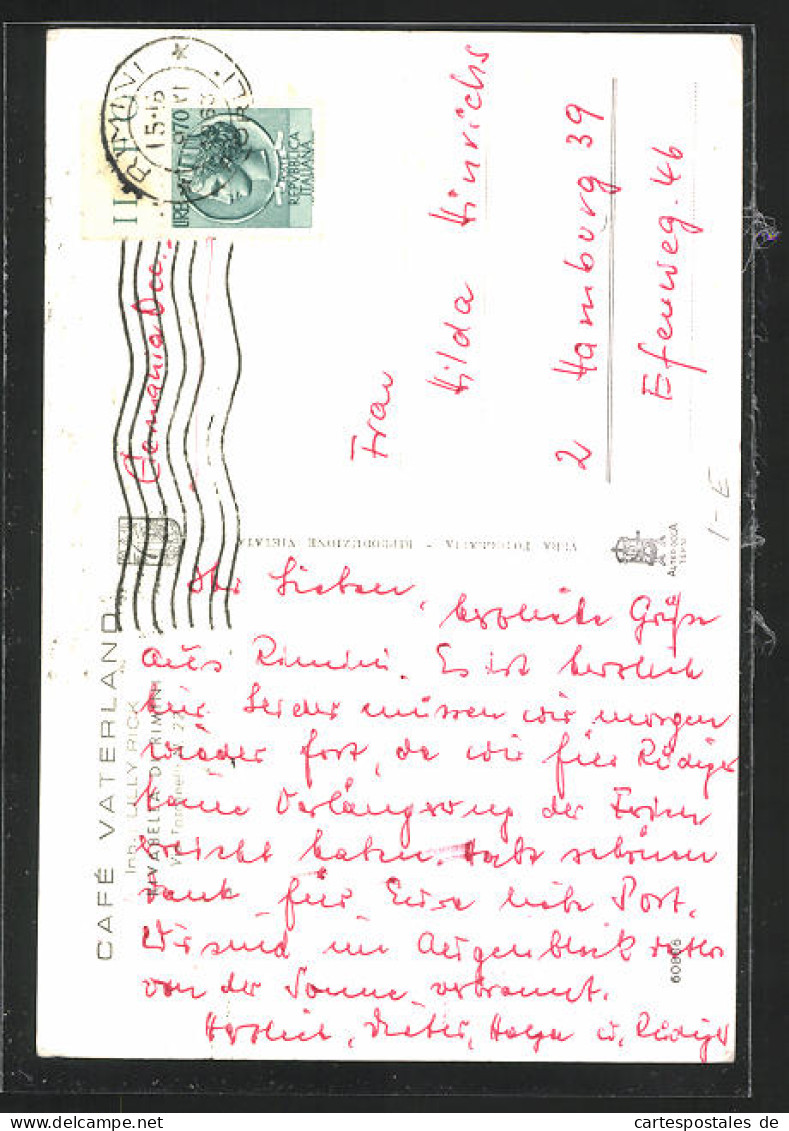 RIMINI
15-16
LIRE 70
REPVBBLICA
ITALIANA
Germania Occ.
Frau
Hilda Hinrichs
2 Hamburg 39
Efeuweg. 46
1-E
VERA FOTOGRAFIA - RIPRODUZIONE VIETATA
ALTEROCCA
TERNI
CAFÉ VATERLAND
Inh.: LILLY RICK
RIVABELLA DI RIMINI
60806
Ihr Lieben, herzliche Grüße
aus Rimini. Es ist herrlich
hier. Leider müssen wir morgen
wieder fort, da wir für Rüdiger
keine Verlängerung der Ferien
erreicht haben. Habt schönen
Dank für Eure liebe Post.
Wir sind im Augenblick
von der Sonne verbrannt.
Herzlich, Dieter, u. Rüdiger
cartespostales de